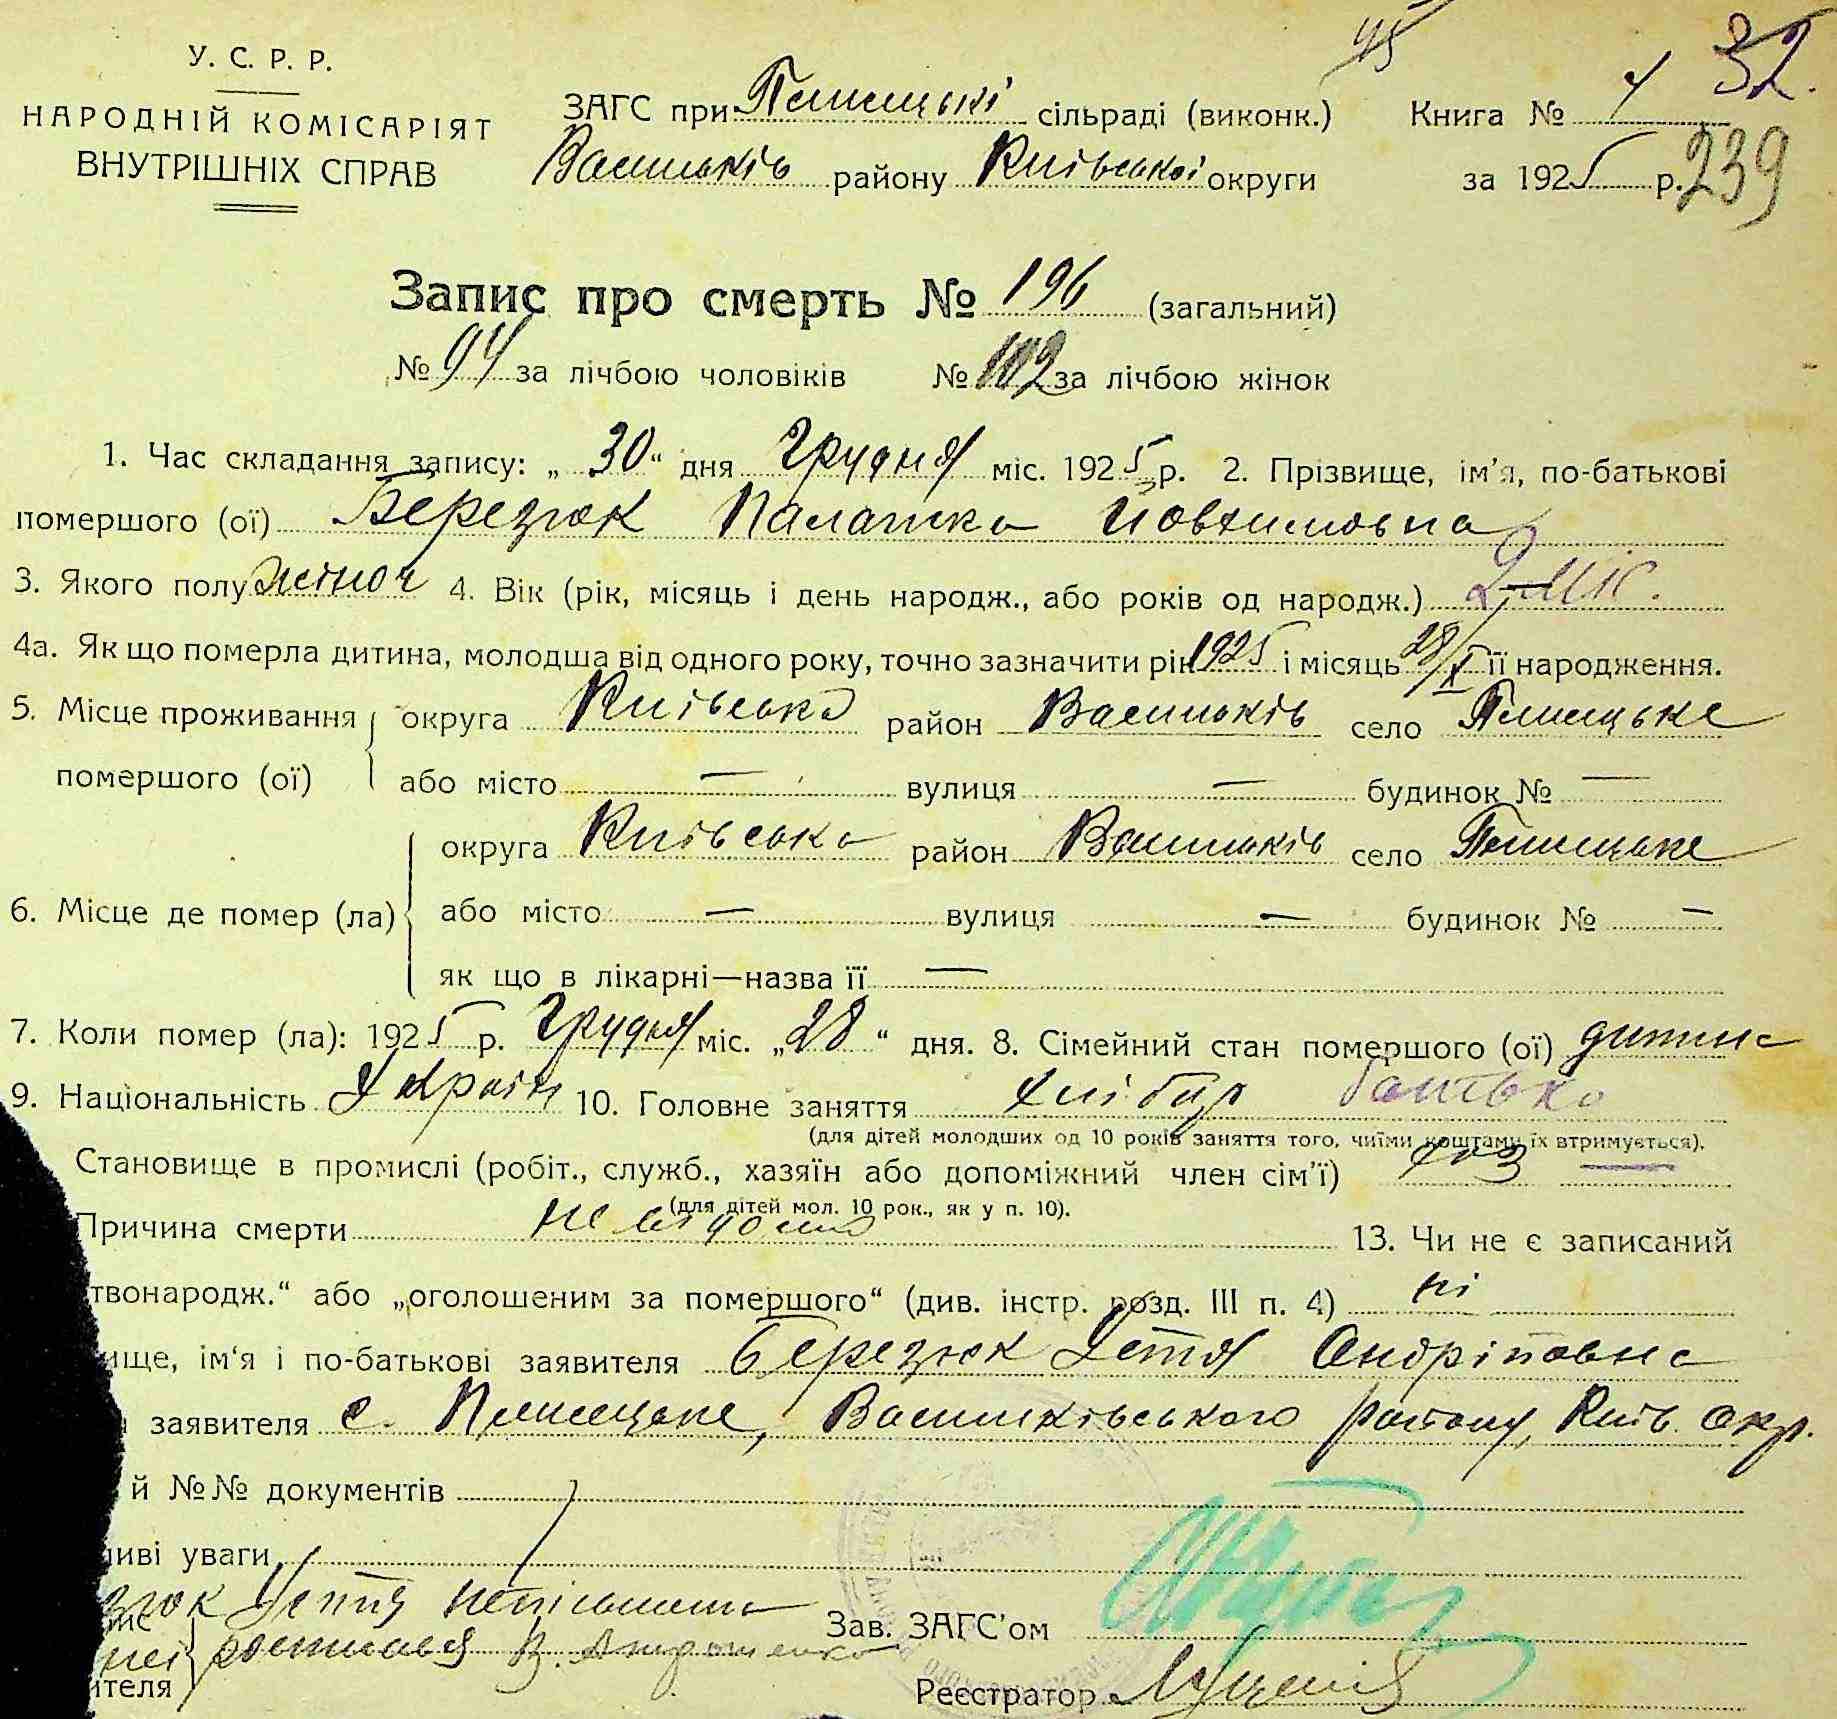 45
32.
239
У. С. Р. Р.
НАРОДНІЙ КОМІСАРІЯТ
ВНУТРІШНІХ СПРАВ
ЗАГС при Плисецькі сільраді (виконк.) Книга №
Васильків району Київської округи за 1925 р.
Запис про смерть № 196 (загальний)
№ 94 за лічбою чоловіків № 102 за лічбою жінок
1. Час складання запису: „ 30 “ дня Грудня міс. 1925 р. 2. Прізвище, ім'я, по-батькові
помершого (ої) Березюк Палажка Йовхимовна
3. Якого полу жіноч 4. Вік (рік, місяць і день народж., або років од народж.) 2 міс.
4а. Як що померла дитина, молодша від одного року, точно зазначити рік 1925 і місяць 28/X її народження.
5. Місце проживання округа Київська район Васильків село Плисецьке
помершого (ої) або місто — вулиця — будинок № —
округа Київська район Васильків село Плисецьке
6. Місце де помер (ла) або місто — вулиця — будинок № —
як що в лікарні—назва її —
7. Коли помер (ла): 1925 р. Грудня міс. „28 “ дня. 8. Сімейний стан помершого (ої) дитина
9. Національність Україн 10. Головне заняття хлібор батько
(для дітей молодших од 10 років заняття того, чиїми коштами їх втримується).
Становище в промислі (робіт., служб., хазяїн або допоміжний член сім'ї) хаз —
(для дітей мол. 10 рок., як у п. 10).
Причина смерти не відомо 13. Чи не є записаний
твонародж.“ або „оголошеним за помершого“ (див. інстр. розд. III п. 4) ні
ище, ім'я і по-батькові заявителя Березюк Устя Андріповна
заявителя с. Плисецьке, Васильківського району, Київ. окр.
й №№ документів
иві уваги
зюк Устя непісьмена
ис Зав. ЗАГС'ом
неї росписався В.
ителя Реєстратор